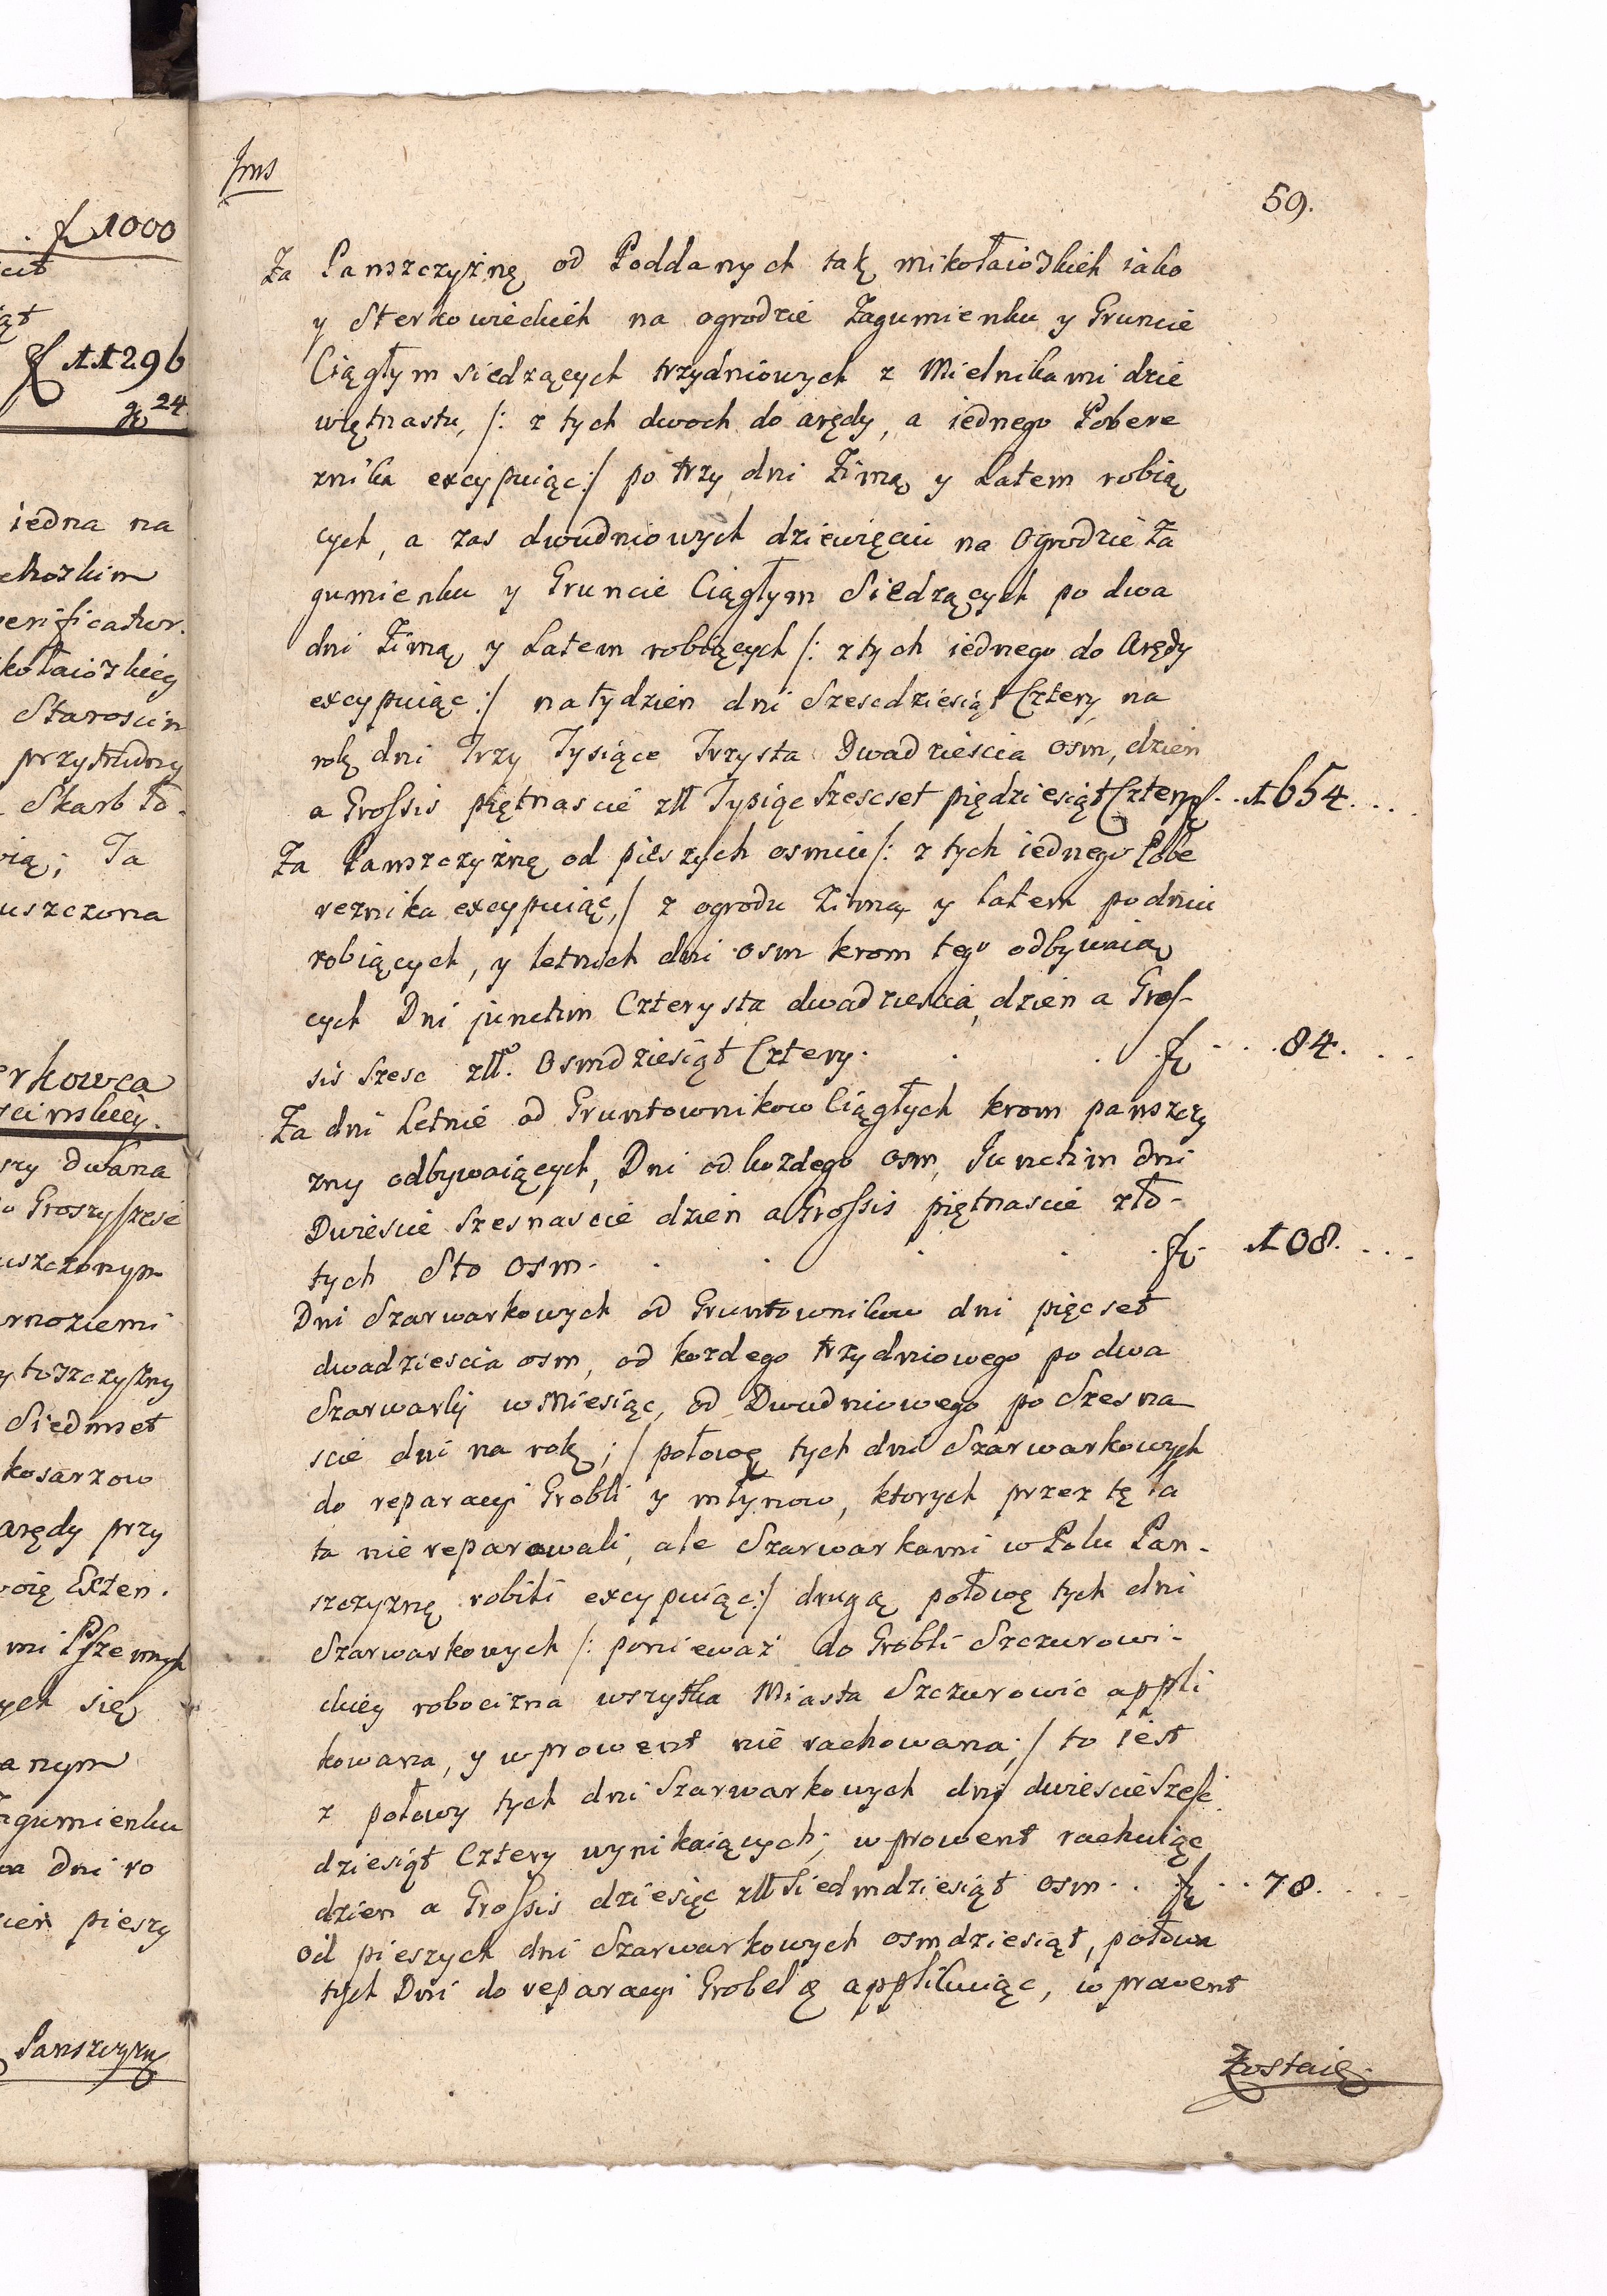 Jms
59.
Za Panszczyznę od Poddanych tak mikołaioskich iako
y Sterkowieckich na ogrodzie Zagumienku y Gruncie
Ciągłym siedzących trzydniowych z Mielnikami dzie
więtnastu, /: z tych dwoch do arędy, a iednego Pobere
znika excypuiąc :/ po trzy dni Zimą y Latem robią
cych, a zas dwudniowych dziewięciu na Ogrodzie Za
gumienku y Gruncie Ciągłym Siedzących po dwa
dni Zimą y Latem robiących /: z tych iednego do Arędy
excypuiąc :/ na tydzien dni Szescdziesiąt Cztery na
rok dni Trzy Tysiące Trzysta Dwadziescia osm, dzien
a Grossis piętnascie złł Tysiąc Szescset piędziesiąt Cztery f . . 1654. . .
Za Panszczyznę od pieszych osmiu /: z tych iednego Pobe
reznika excypuiąc, / z ogrodu Zimą y latem po dniu
robiących, y letnich dni osm krom tego odbywaią
cych Dni junctim Czterysta dwadziescia, dzien a Gros-
sis szesc złł. Osmdziesiąt Cztery. . . f . . . 84. . .
Za dni Letnie od Gruntownikow Ciągłych krom panszczy
zny odbywaiących, Dni od kozdego osm, Junctim dni
Dwiescie Szesnascie dzien a Grossis piętnascie zło-
tych Sto osm. . . . . f. 108. . . .
Dni Szarwarkowych od Gruntownikow dni pięcset
dwadziescia osm, od kozdego trzydniowego po dwa
Szarwarki w Miesiąc, od Dwudniowego po Szesna
scie dni na rok; / połowę tych dni Szarwarkowych
do reparacyi Grobli y młynow, ktorych przez tę la
ta nie reparowali, ale Szarwarkami w Polu Pan-
szczyznę robili excypuiąc :/ drugą połowę tych dni
Szarwarkowych /: poniewaz do Grobli Szczurowi-
ckiey robocizna wszytka Miasta Szczurowic appli
kowana, y w prowent nie rachowana; / to iest
z połowy tych dni Szarwarkowych dni dwiescie Szesc
dziesiąt Cztery wynikaiących; w prowent rachuiąc
dzien a Grossis dziesięc złł Siedmdziesiąt osm . . f . . 78. . . .
od pieszych dni Szarwarkowych osmdziesiąt, połowa
tych Dni do reparacyi Grobel applikuiąc, w prowent
Zostaie
. f 1000
f 11296
g 24
iedna na
Staroscin
przytrudny
Skarb to.
Ta
uszczona
erkowca
u Groszy szesc
uszczonym
Siedmset
kosarzow
arędy przy
Exten.
ych się
anym
agumienku
dni ro
pieszy
Panszczyzn